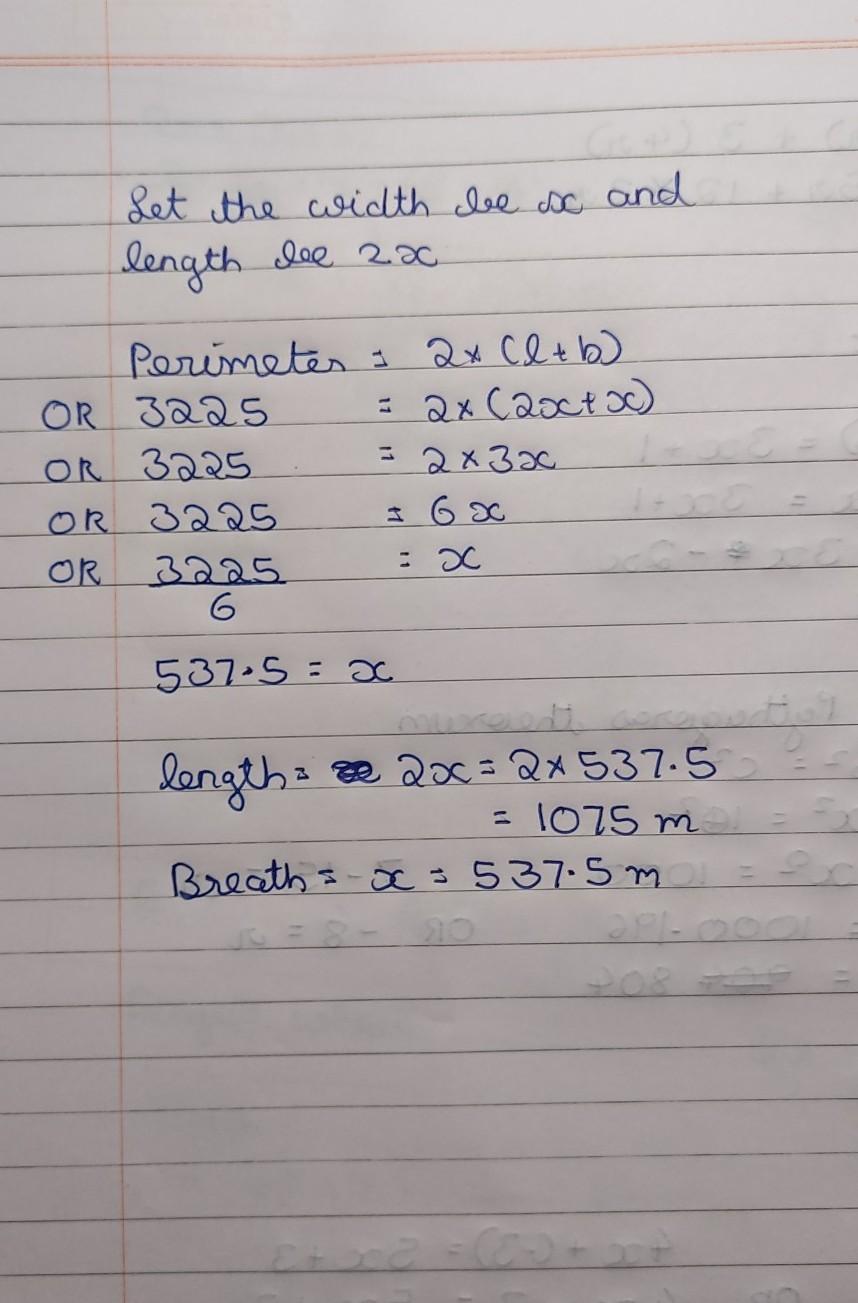 Let the width be x and
length be 2x
Perimeter = 2 × (l + b)
OR 3225 = 2 × (2x + x)
OR 3225 = 2 × 3x
OR 3225 = 6x
OR 3225/6 = x
537.5 = x
length = 2x = 2 × 537.5
= 1075 m
Breath = x = 537.5 m